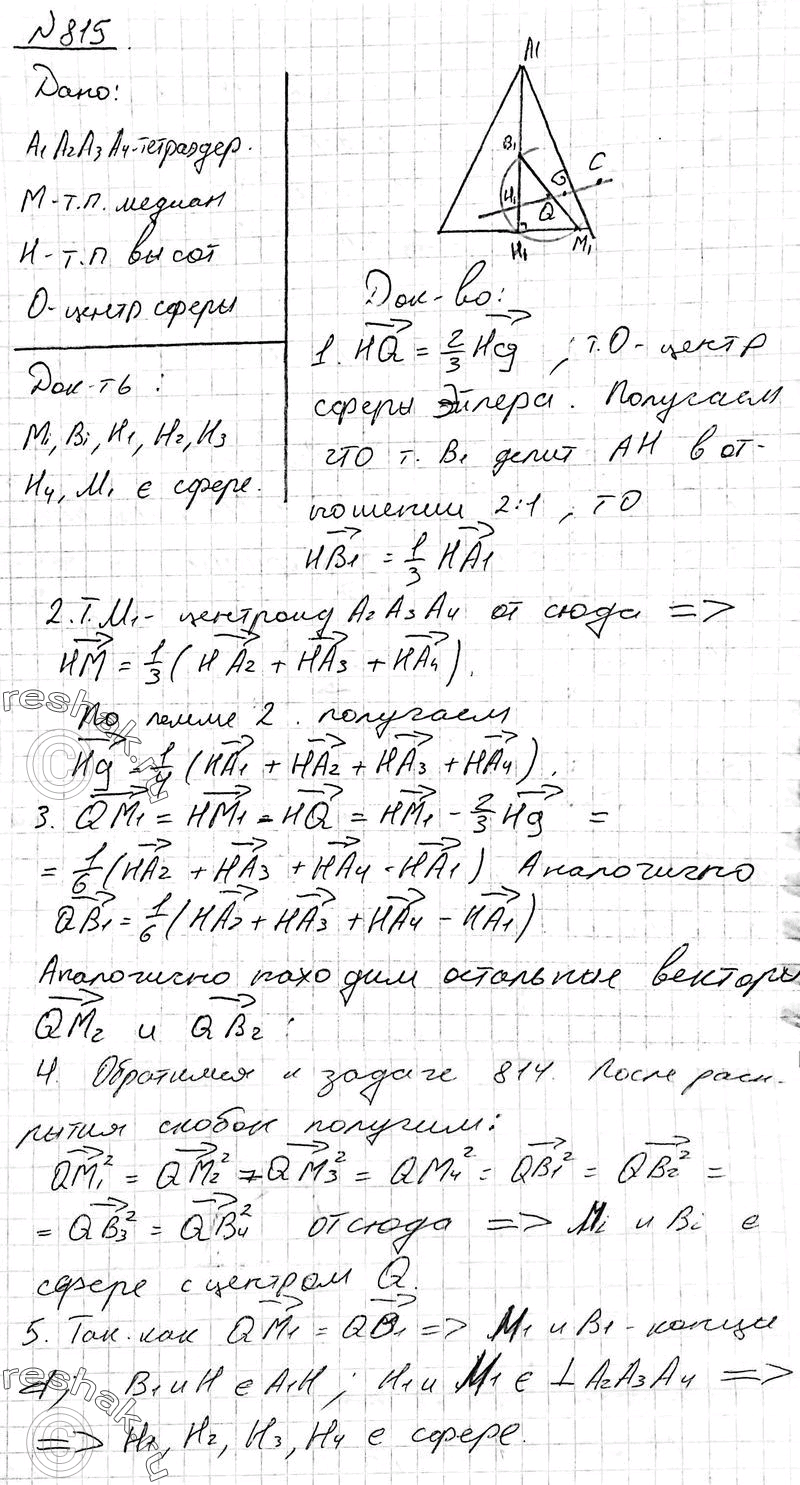 №815
Дано:
A₁A₂A₃A₄-тетраэдер.
M-т.п. медиан
H-т.п высот
O-центр сферы
Док-ть :
Mi, Bi, H₁, H₂, H₃
H₄, M₁ ∈ сфере.
A₁
B₁
C
G
H₁
Q
H₁
M₁
Док-во:
1. HQ = 2/3 Hg ; т.O-центр
сферы Эйлера. Получаем
что т. B₁ делит AH в от-
ношении 2:1 , то
HB₁ = 1/3 HA₁
2. т.M₁- центроид A₂A₃A₄ от сюда =>
HM = 1/3 (HA₂ + HA₃ + HA₄).
По лемме 2 . получаем
Hg = 1/4 (HA₁ + HA₂ + HA₃ + HA₄).
3. QM₁ = HM₁ - HQ = HM₁ - 2/3 Hg =
= 1/6 (HA₂ + HA₃ + HA₄ - HA₁) Аналогично
QB₁ = 1/6 (HA₂ + HA₃ + HA₄ - HA₁)
Аналогично находим остальные векторы
QM₂ и QB₂ :
4. Обратимся к задаче 814. После раск-
рытия скобок получим:
QM₁² = QM₂² = QM₃² = QM₄² = QB₁² = QB₂² =
= QB₃² = QB₄² отсюда => Mi и Bi ∈
сфере с центром Q.
5. Так.как QM₁ = QB₁ => M₁ и B₁ - концы
d; B₁ и H ∈ A₁H ; H₁ и M₁ ∈ ⊥ A₂A₃A₄ =>
=> H₁, H₂, H₃, H₄ ∈ сфере.
reshak.ru
reshak.ru